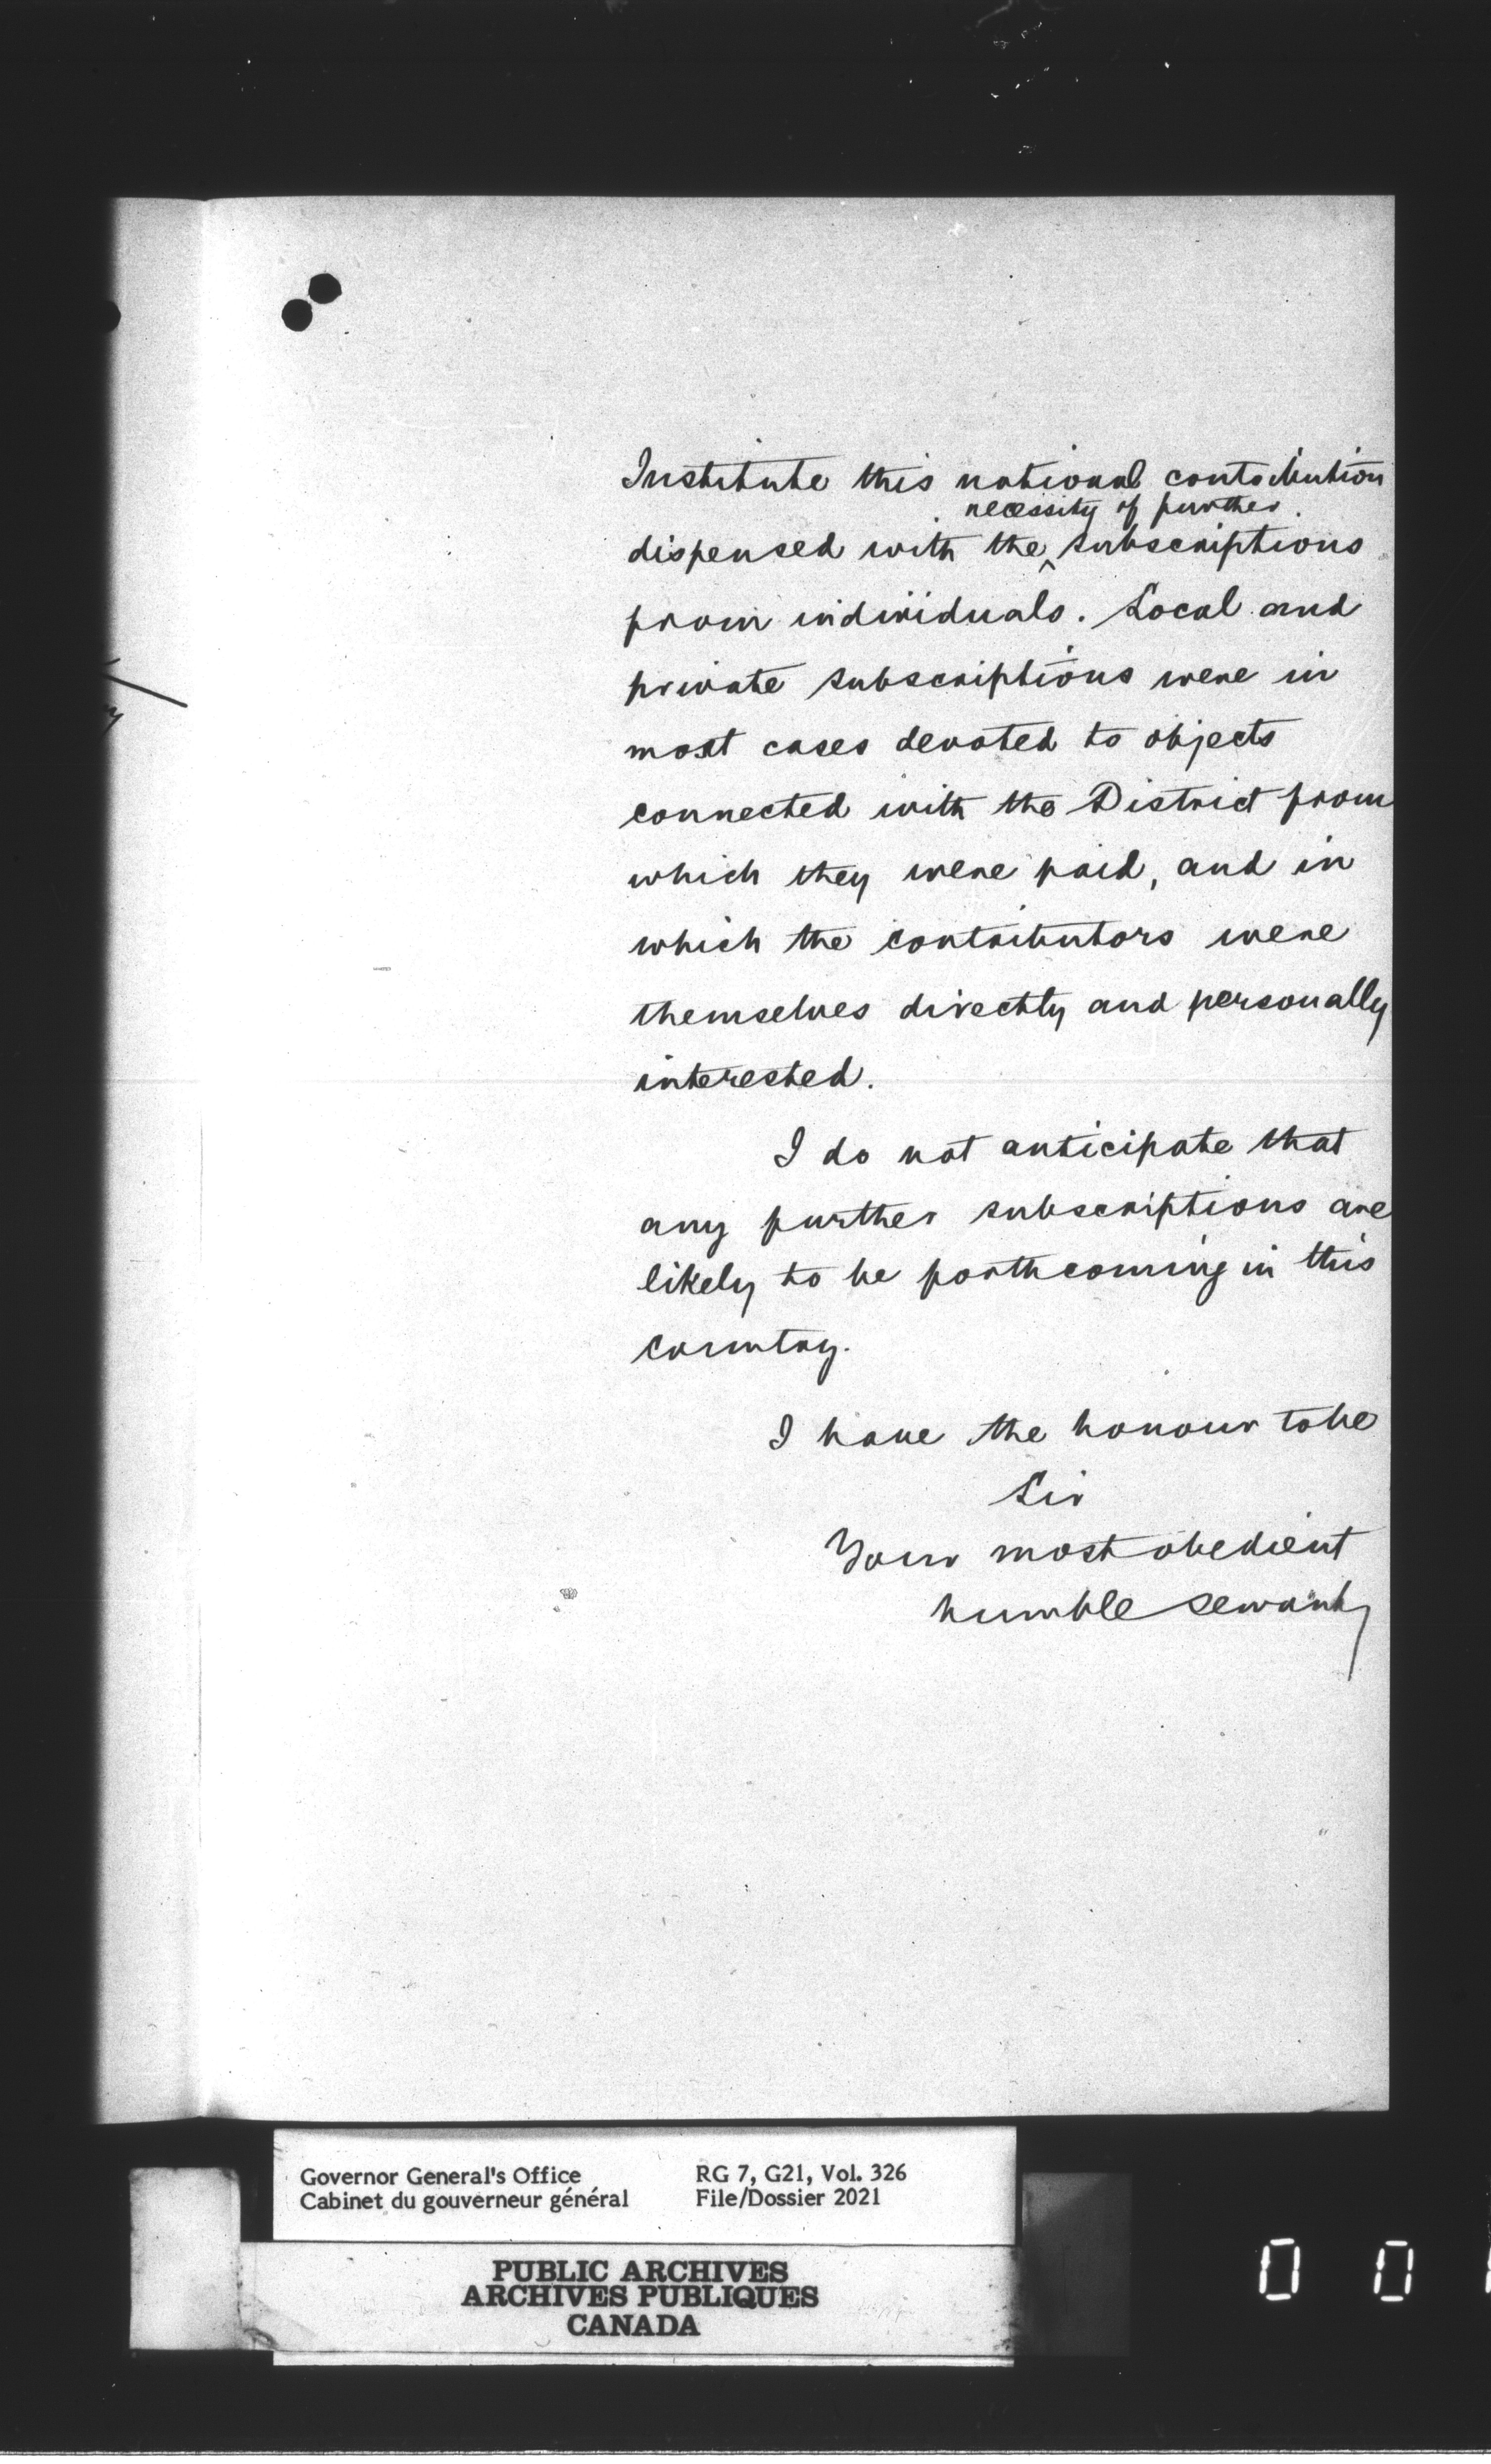 Institute this national contribution
necessity of further
dispensed with the ^ subscriptions
from individuals. Local and
private subscriptions were in
most cases devoted to objects
connected with the District from
which they were paid, and in
which the contributors were
themselves directly and personally
interested.
I do not anticipate that
any further subscriptions are
likely to be forthcoming in this
country.
I have the honour to be
Sir
Your most obedient
humble servant
Governor General's Office
Cabinet du gouverneur général
RG 7, G21, Vol. 326
File/Dossier 2021
PUBLIC ARCHIVES
ARCHIVES PUBLIQUES
CANADA
0 0